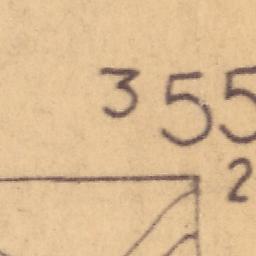 3 55
2